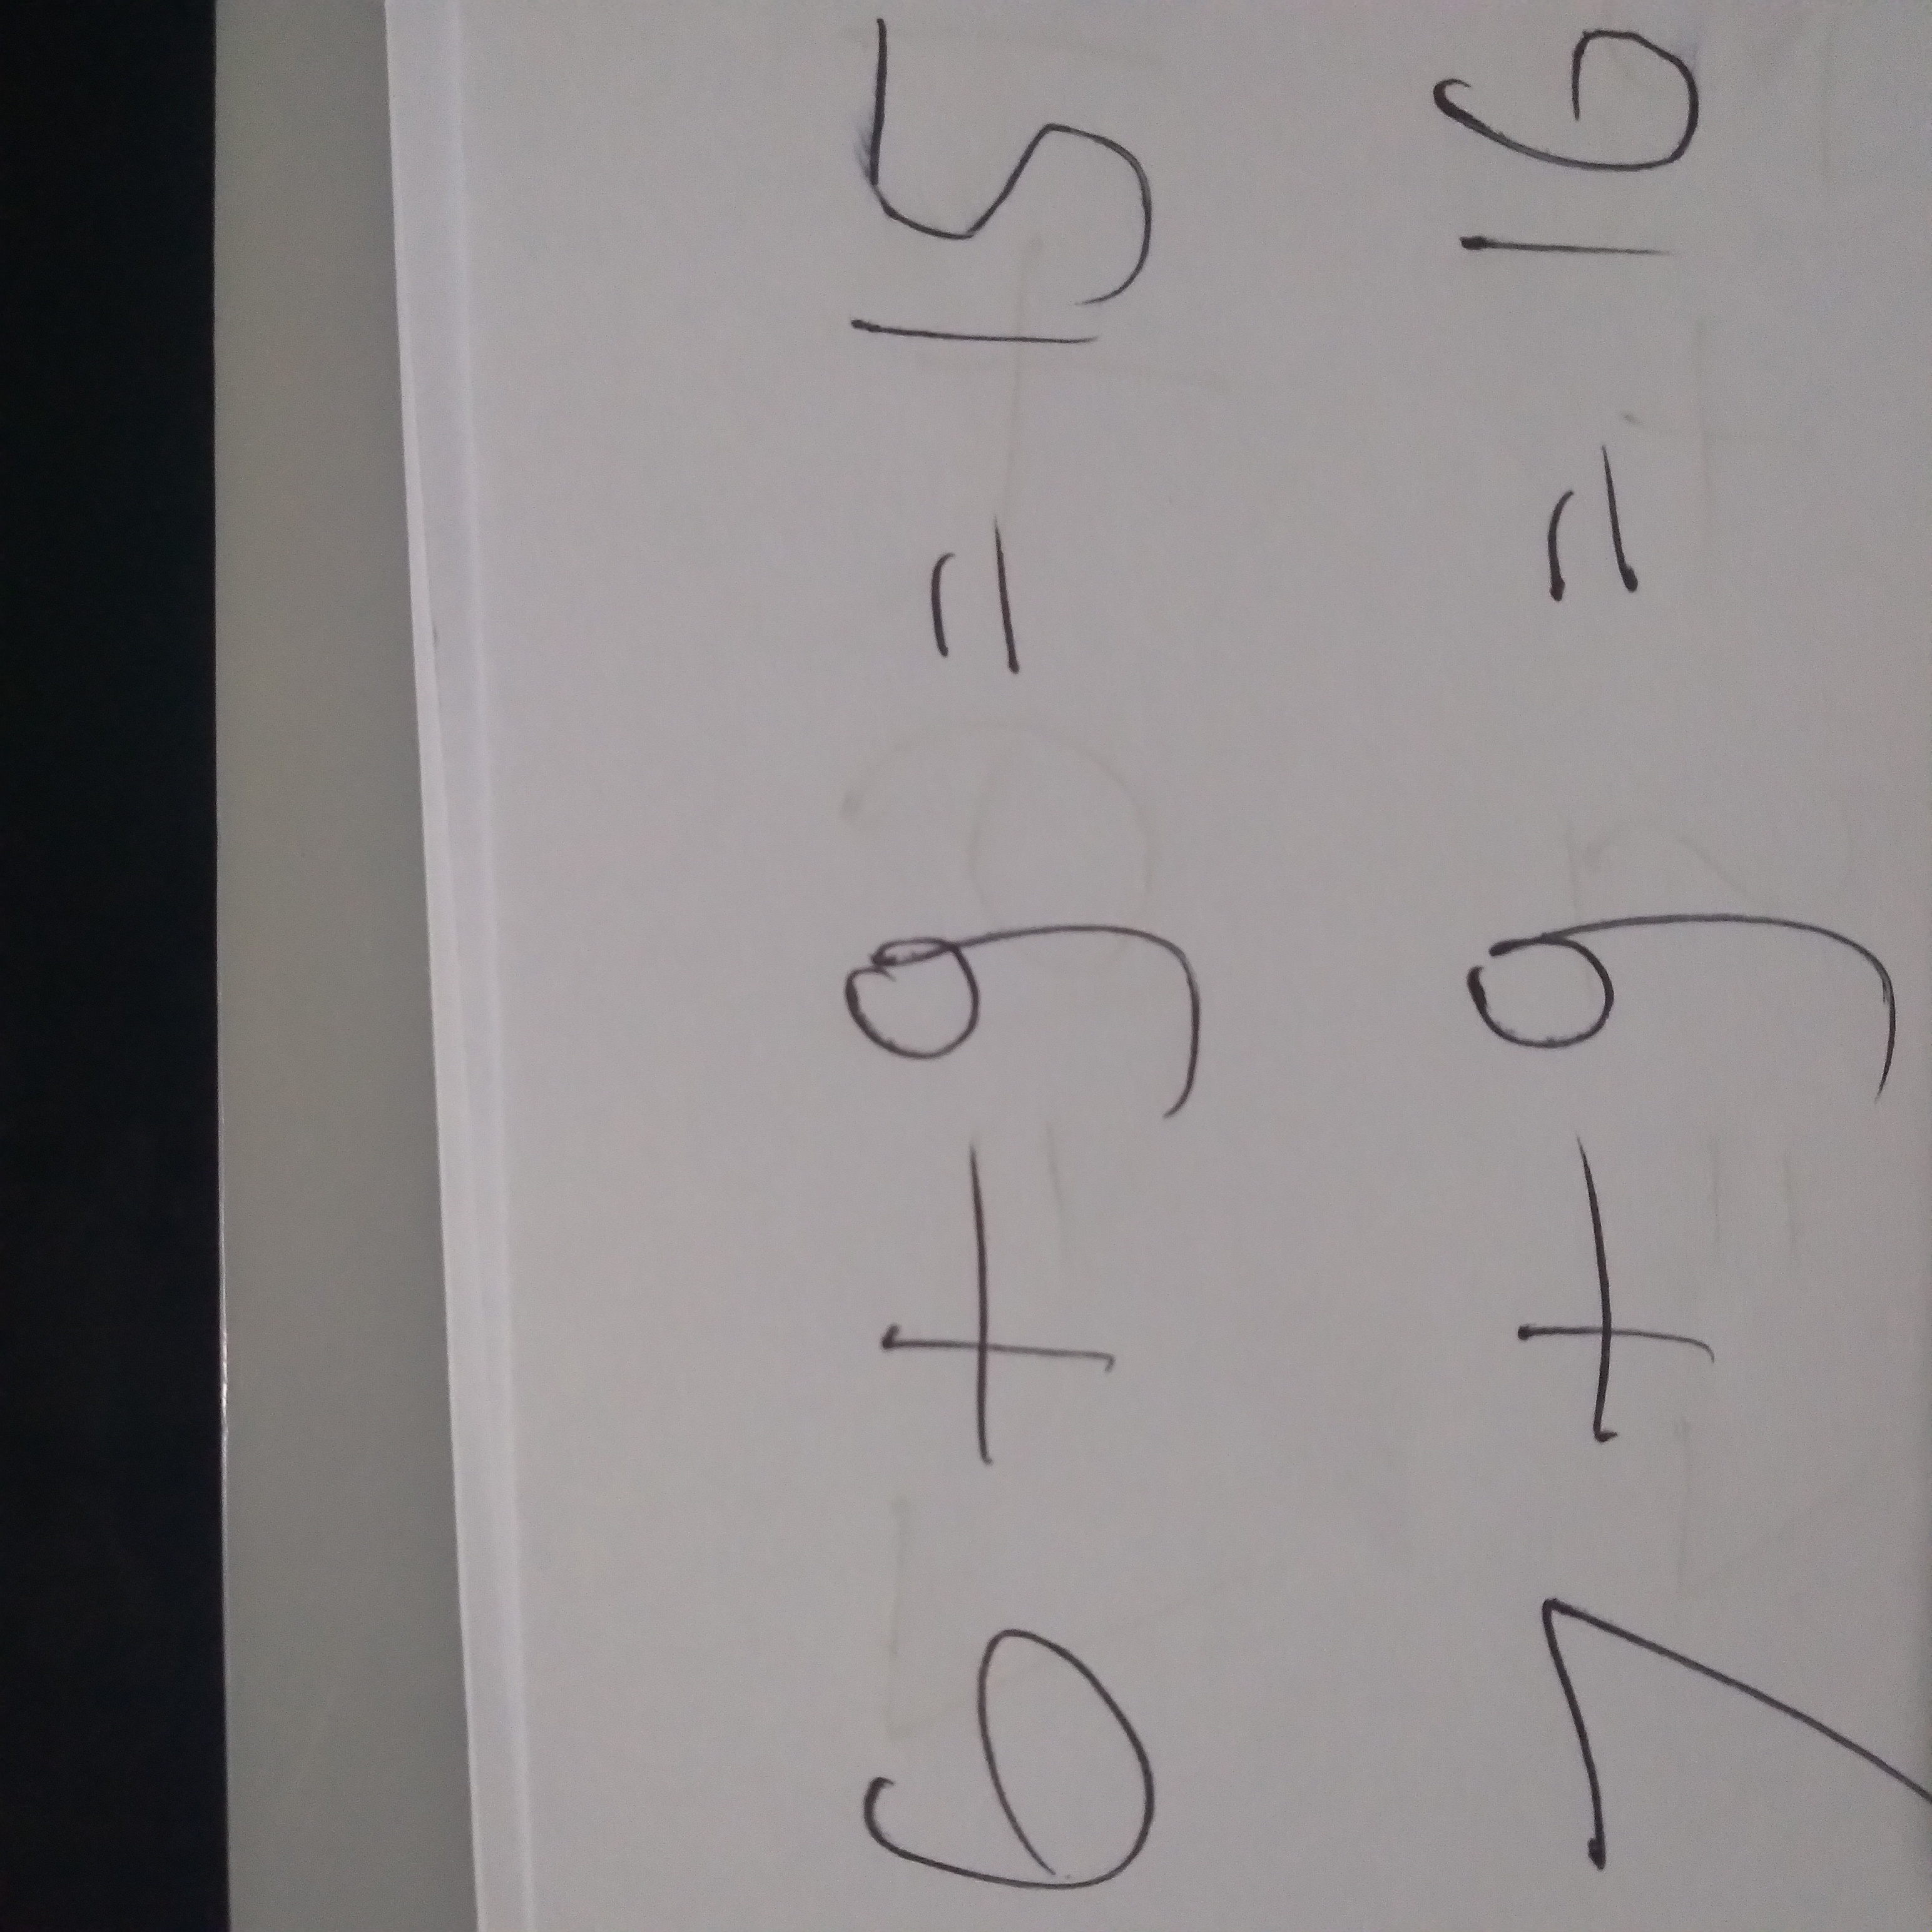 6 + 9 = 15
7 + 9 = 16